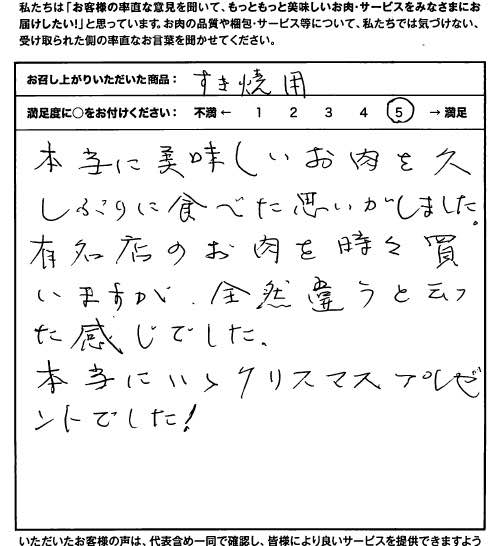 私たちは「お客様の率直な意見を聞いて、もっともっと美味しいお肉・サービスをみなさまにお
届けしたい!」と思っています。お肉の品質や梱包・サービス等について、私たちでは気づけない、
受け取られた側の率直なお言葉を聞かせてください。
お召し上がりいただいた商品: すき焼用
満足度に○をお付けください: 不満 ← 1 2 3 4 5 → 満足
本当に美味しいお肉を久
しぶりに食べた思いがしました。
有名店のお肉を時々買
いますが、全然違うと云っ
た感じでした、
本当にいいクリスマスプレゼ
ントでした!
いただいたお客様の声は、代表含め一同で確認し、皆様により良いサービスを提供できますよう